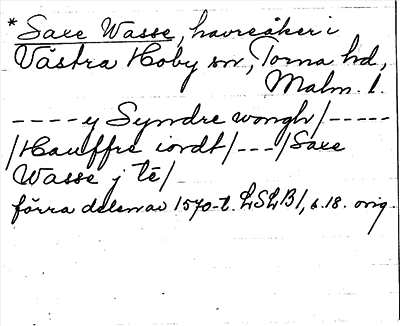 * Saxe Wasse, havreåker i
Västra Hoby sn, Torna hd,
Malm. l.
----y Syndre wongh/-----
/Hauffre iordt/---/Saxe
Wasse j tē/
förra delen av 1570-t. LSLB1, s.18. orig.